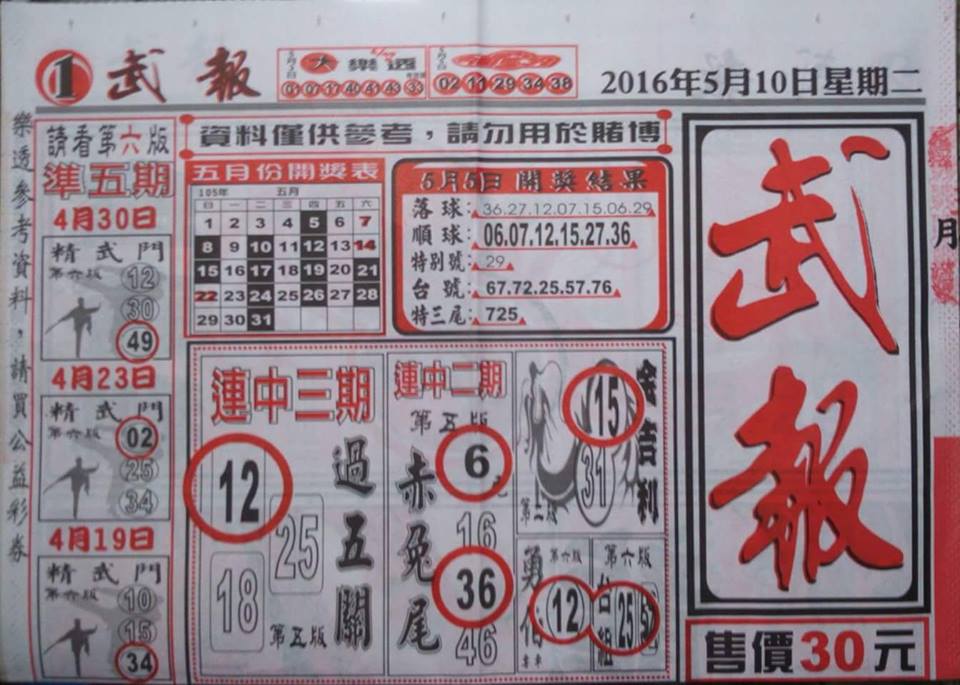 1 武報
5月5日 大樂透
01 07 17 40 41 43 33
02 11 29 34 38
2016年5月10日星期二
樂透參考資料，請買公益彩券
請看第六版
準五期
4月30日
精武門
第六版
12
30
49
4月23日
精武門
第六版
02
25
34
4月19日
精武門
第六版
10
15
34
資料僅供參考，請勿用於賭博
五月份開獎表
105年 五月
日 一 二 三 四 五 六
1 2 3 4 5 6 7
8 9 10 11 12 13 14
15 16 17 18 19 20 21
22 23 24 25 26 27 28
29 30 31
5月5日開獎結果
落球：36.27.12.07.15.06.29
順球：06.07.12.15.27.36
特別號：29
台號：67.72.25.57.76
特三尾：725
連中三期
過五關
12
25
18
第五版
連中二期
第五版
赤兔尾
6
16
36
46
金吉利
15
31
第二版
第六版
12
第六版
台組
25
52
武報
售價30元
月